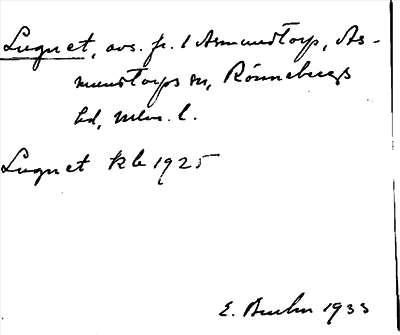 Lugnet, avs. fr. 1 Asmundtorp, As-
mundtorps sn, Rönnebergs
hd, Mlm. l.
Lugnet kb 1925
E. Bruhn 1933